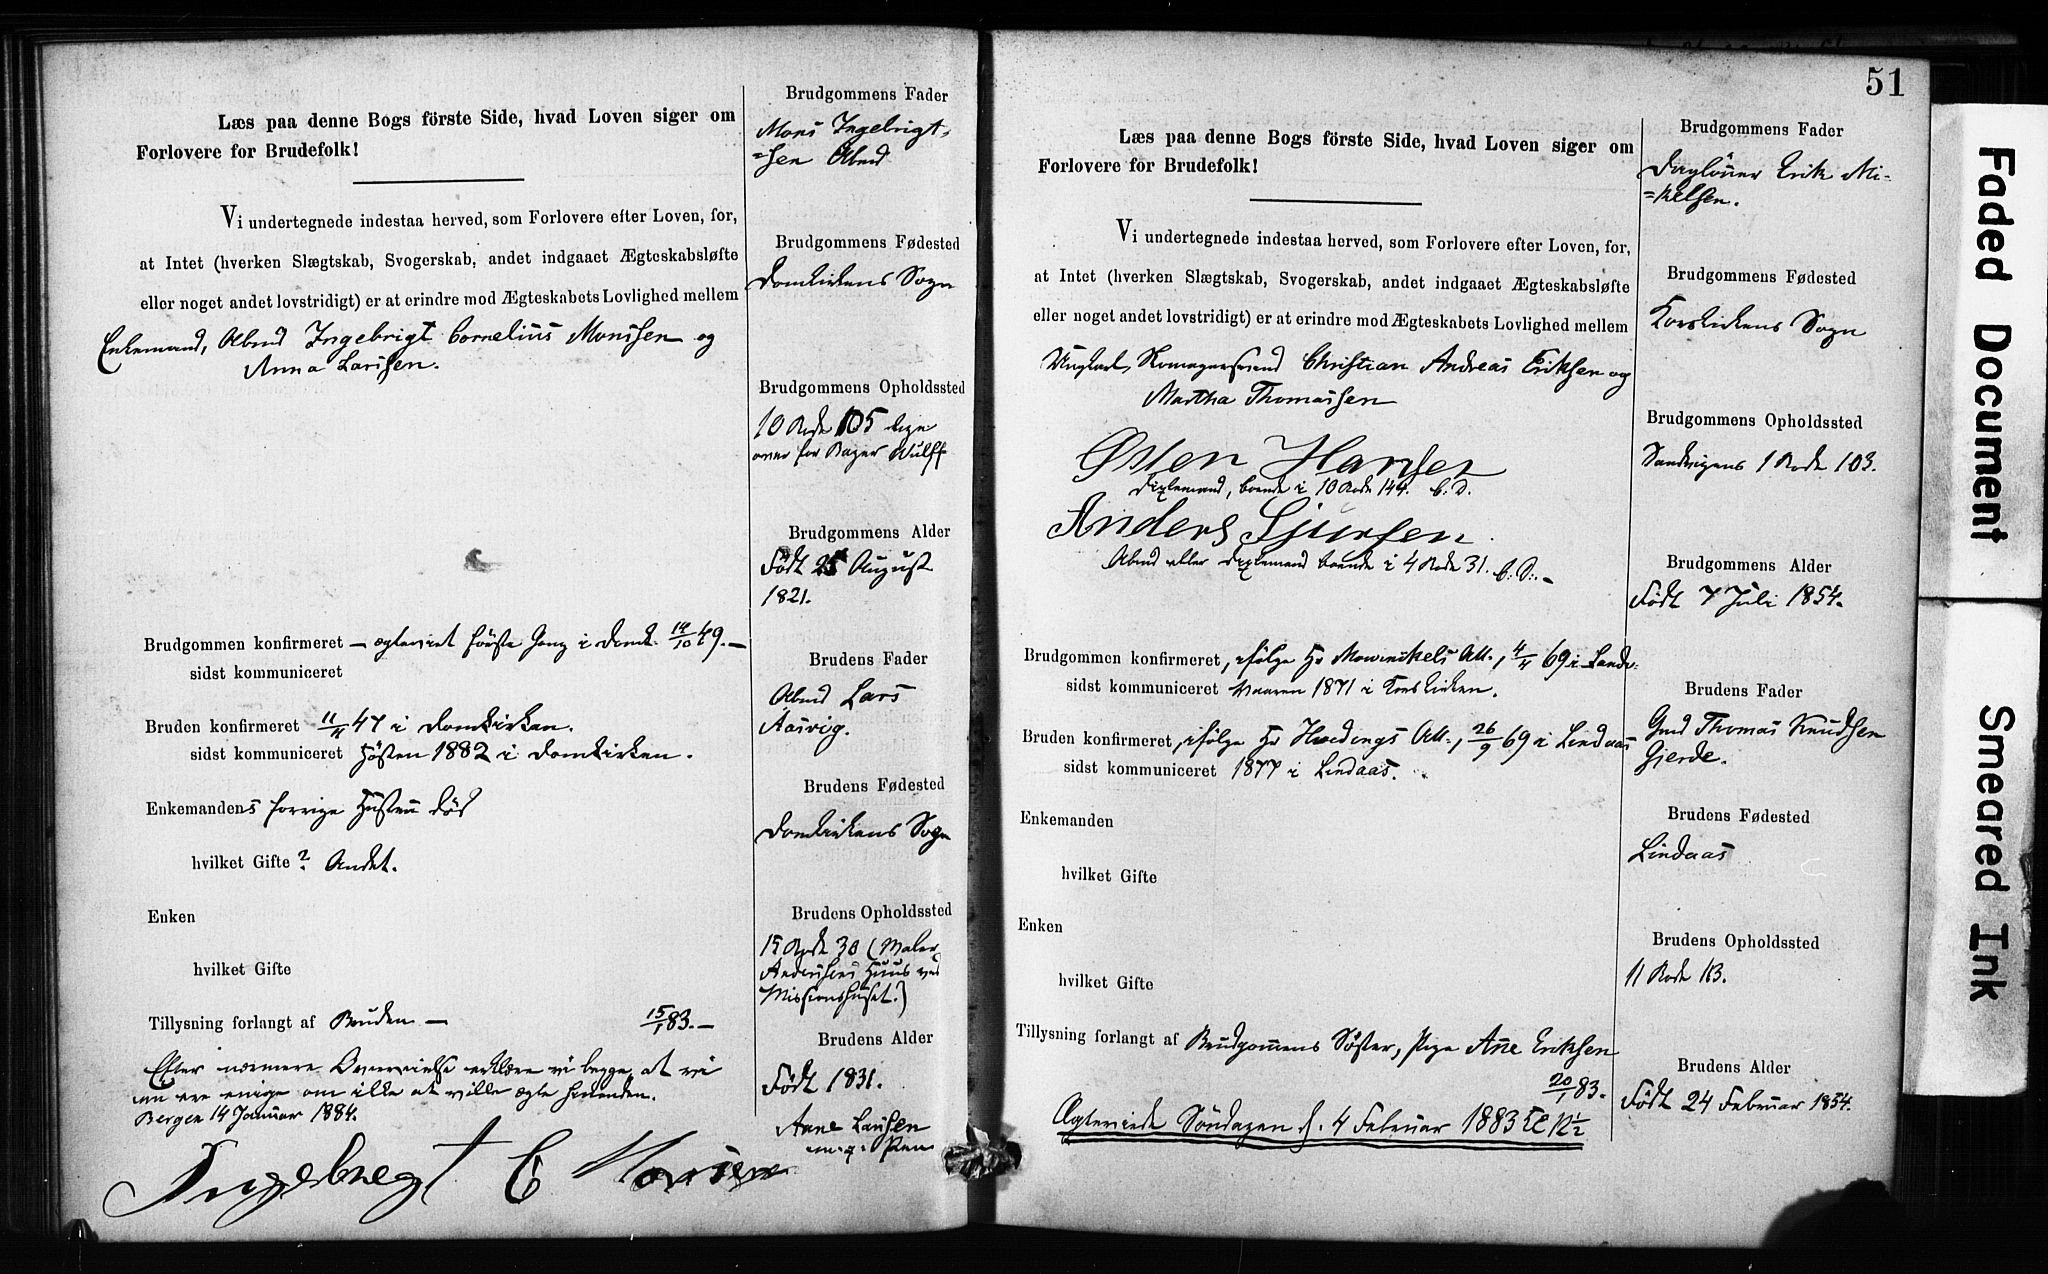 Læs paa denne Bogs förste Side, hvad Loven siger om
Forlovere for Brudefolk!
Vi undertegnede indestaa herved, som Forlovere efter Loven, for,
at Intet (hverken Slægtskab, Svogerskab, andet indgaaet Ægteskabsløfte
eller noget andet lovstridigt) er at erindre mod Ægteskabets Lovlighed mellem
Enkemand, Abmd Ingebrigt Cornelius Monssen og
Anna Larssen.
Brudgommen konfirmeret – ægteviet første Gang i Domk. 14/10 49. –
sidst kommuniceret
Bruden konfirmeret 11/4 47 i Domkirken.
sidst kommuniceret Høsten 1882 i Domkirken.
Enkemandens forrige Hustru död
hvilket Gifte? Andet.
Enken
hvilket Gifte
Tillysning forlangt af Bruden – 15/1 83. –
Efter nærmere Overveielse erklære vi begge, at vi
nu ere enige om ikke at ville ægte hinanden.
Bergen 14 Januar 1884.
Ingebregt C Monsen
Brudgommens Fader
Mons Ingebrigt-
=sen Abmd
Brudgommens Fødested
Domkirkens Sogn
Brudgommens Opholdssted
10 Rode 105 lige
over for Bager Wulff
Brudgommens Alder
Født 25 August
1821.
Brudens Fader
Abmd Lars
Aasvig.
Brudens Fødested
Domkirkens Sogn
Brudens Opholdssted
15 Rode 30 (Maler
Anderssens Huus ved
Missionshuset.)
Brudens Alder
Födt 1831.
Anne Larsen
m. p. Pen
51
Læs paa denne Bogs förste Side, hvad Loven siger om
Forlovere for Brudefolk!
Vi undertegnede indestaa herved, som Forlovere efter Loven, for,
at Intet (hverken Slægtskab, Svogerskab, andet indgaaet Ægteskabsløfte
eller noget andet lovstridigt) er at erindre mod Ægteskabets Lovlighed mellem
Ungkarl, Skomagersvend Christian Andreas Eriksen og
Martha Thomassen
Østen Hansen
Dixlemand, boende i 10 Rode 144. b. d.
Anders Sjursen
Abmd eller Dixlemand boende i 4 Rode 31. b. d. –
Brudgommen konfirmeret, ifölge Hr Mowinckels Att., 4/4 69 i Landk:
sidst kommuniceret Vaaren 1871 i Korskirken.
Bruden konfirmeret, ifölge Hr Hvedings Att., 26/9 69 i Lindaas
sidst kommuniceret 1877 i Lindaas.
Enkemanden
hvilket Gifte
Enken
hvilket Gifte
Tillysning forlangt af Brudgommens Söster, Pige Ane Eriksen
20/1 83.
Ægteviede Söndagen d. 4 Februar 1883 Kl 12 1/2
Brudgommens Fader
Daglönner Erik Mi-
=kelsen.
Brudgommens Fødested
Korskirkens Sogn
Brudgommens Opholdssted
Sandvigens 1 Rode 103.
Brudgommens Alder
Födt 7 Juli 1854.
Brudens Fader
Gmd Thomas Knudsen
Gjerde.
Brudens Fødested
Lindaas
Brudens Opholdssted
11 Rode 113.
Brudens Alder
Födt 24 Februar 1854.
Faded Document
Smeared Ink